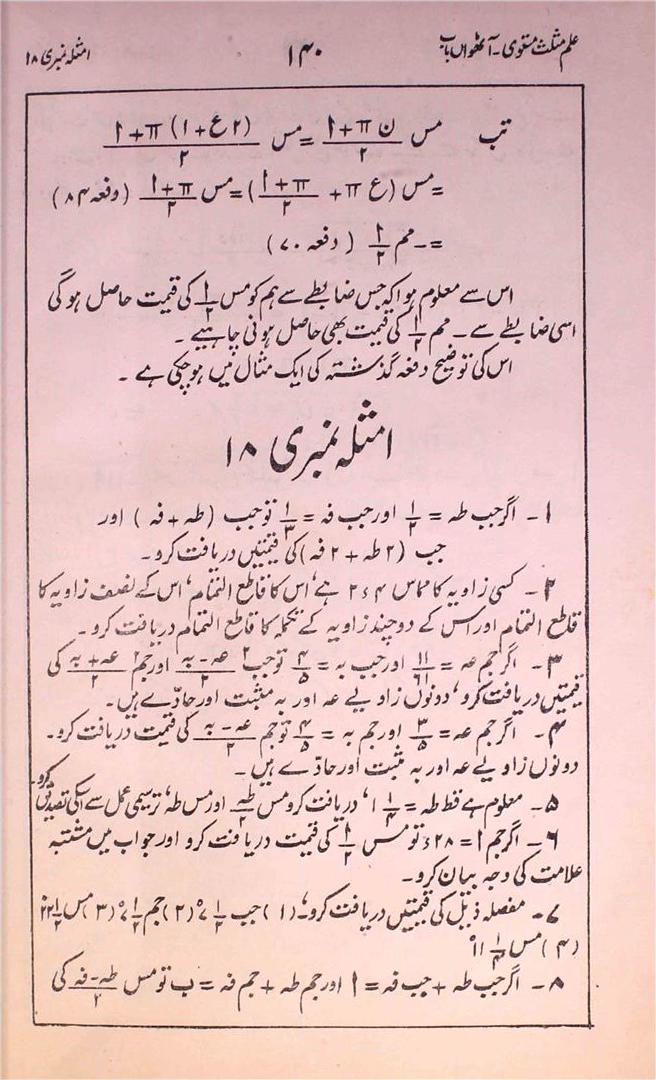 علم مثلث مستوی۔ آٹھواں باب ۱۴۰ امثلہ نمبری ۱۸
تب مس (ن π + ا)/۲ = مس ((۲ع+۱) π + ا)/۲
= مس (ع π + (π + ا)/۲) = مس (π + ا)/۲ (دفعہ ۸۴)
= ۔ مم ا/۲ (دفعہ ۷۰)
اس سے معلوم ہوا کہ جس ضابطے سے ہم کو مس ا/۲ کی قیمت حاصل ہو گی
اسی ضابطے سے ۔ مم ا/۲ کی قیمت بھی حاصل ہونی چاہیے ۔
اس کی توضیح دفعہ گذشتہ کی ایک مثال میں ہو چکی ہے ۔
امثلہ نمبری ۱۸
۱۔ اگر جب طہ = ۱/۲ اور جب فہ = ۱/۳ تو جب (طہ + فہ) اور
جب (۲ طہ + ۲ فہ) کی قیمتیں دریافت کرو۔
۲۔ کسی زاویہ کا مماس ۲ء۴ ہے، اس کا قاطع التمام، اس کے نصف زاویہ کا
قاطع التمام اور اس کے دو چند زاویہ کے تکملہ کا قاطع التمام دریافت کرو۔
۳۔ اگر جم عہ = ۱۱/۶۱ اور جب بہ = ۴/۵ تو جب۲ (عہ - بہ)/۲ اور جم۲ (عہ + بہ)/۲ کی
قیمتیں دریافت کرو، دونوں زاویے عہ اور بہ مثبت اور حادّے ہیں۔
۴۔ اگر جم عہ = ۳/۵ اور جم بہ = ۴/۵ تو جم (عہ - بہ)/۲ کی قیمت دریافت کرو۔
دونوں زاویے عہ اور بہ مثبت اور حادّے ہیں ۔
۵۔ معلوم ہے قط طہ = ۱ ۱/۴، دریافت کرو مس طہ/۲ اور مس طہ، ترسیمی عمل سے اسکی تصدیق کرو۔
۶۔ اگر جم ا = ۲۸ء تو مس ا/۲ کی قیمت دریافت کرو اور جواب میں مشتبہ
علامت کی وجہ بیان کرو۔
۷۔ مفصلہ ذیل کی قیمتیں دریافت کرو، (۱) جب ۷ ۱/۲° (۲) جم ۷ ۱/۲° (۳) مس ۲۲ ۱/۲°
(۴) مس ۱۱ ۱/۴°
۸۔ اگر جب طہ + جب فہ = ا اور جم طہ + جم فہ = ب تو مس (طہ - فہ)/۲ کی